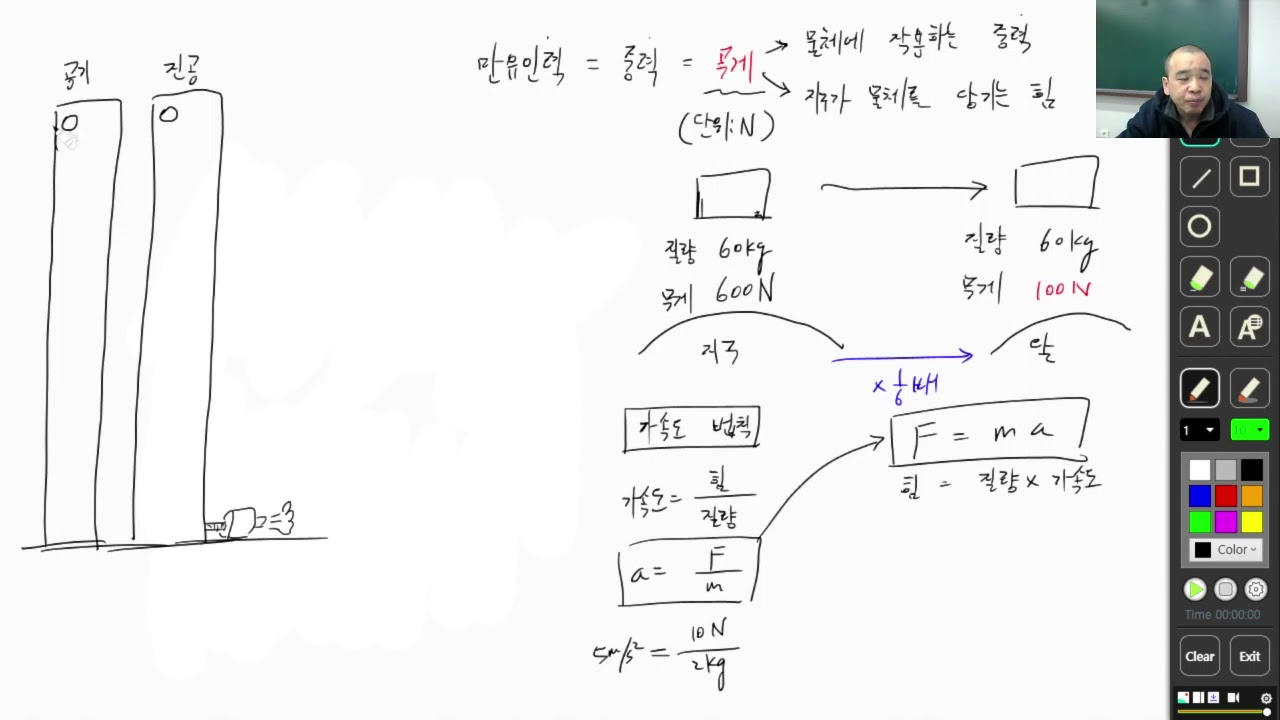 공기
진공
만유인력 = 중력 = 무게
→ 물체에 작용하는 중력
→ 지구가 물체를 당기는 힘
(단위:N)
질량 60kg
무게 600N
지구
질량 60kg
무게 100N
달
× 1/6 배
가속도 법칙
가속도 = 힘/질량
a = F/m
5m/s² = 10N/2kg
F = m a
힘 = 질량 × 가속도
A
A
1
10
Color
Time 00:00:00
Clear
Exit